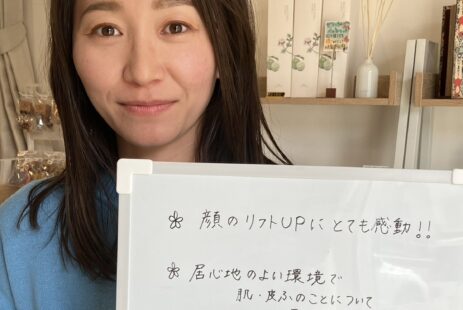 顔のリフトUPにとても感動!!
居心地のよい環境で
肌・皮ふのことについて